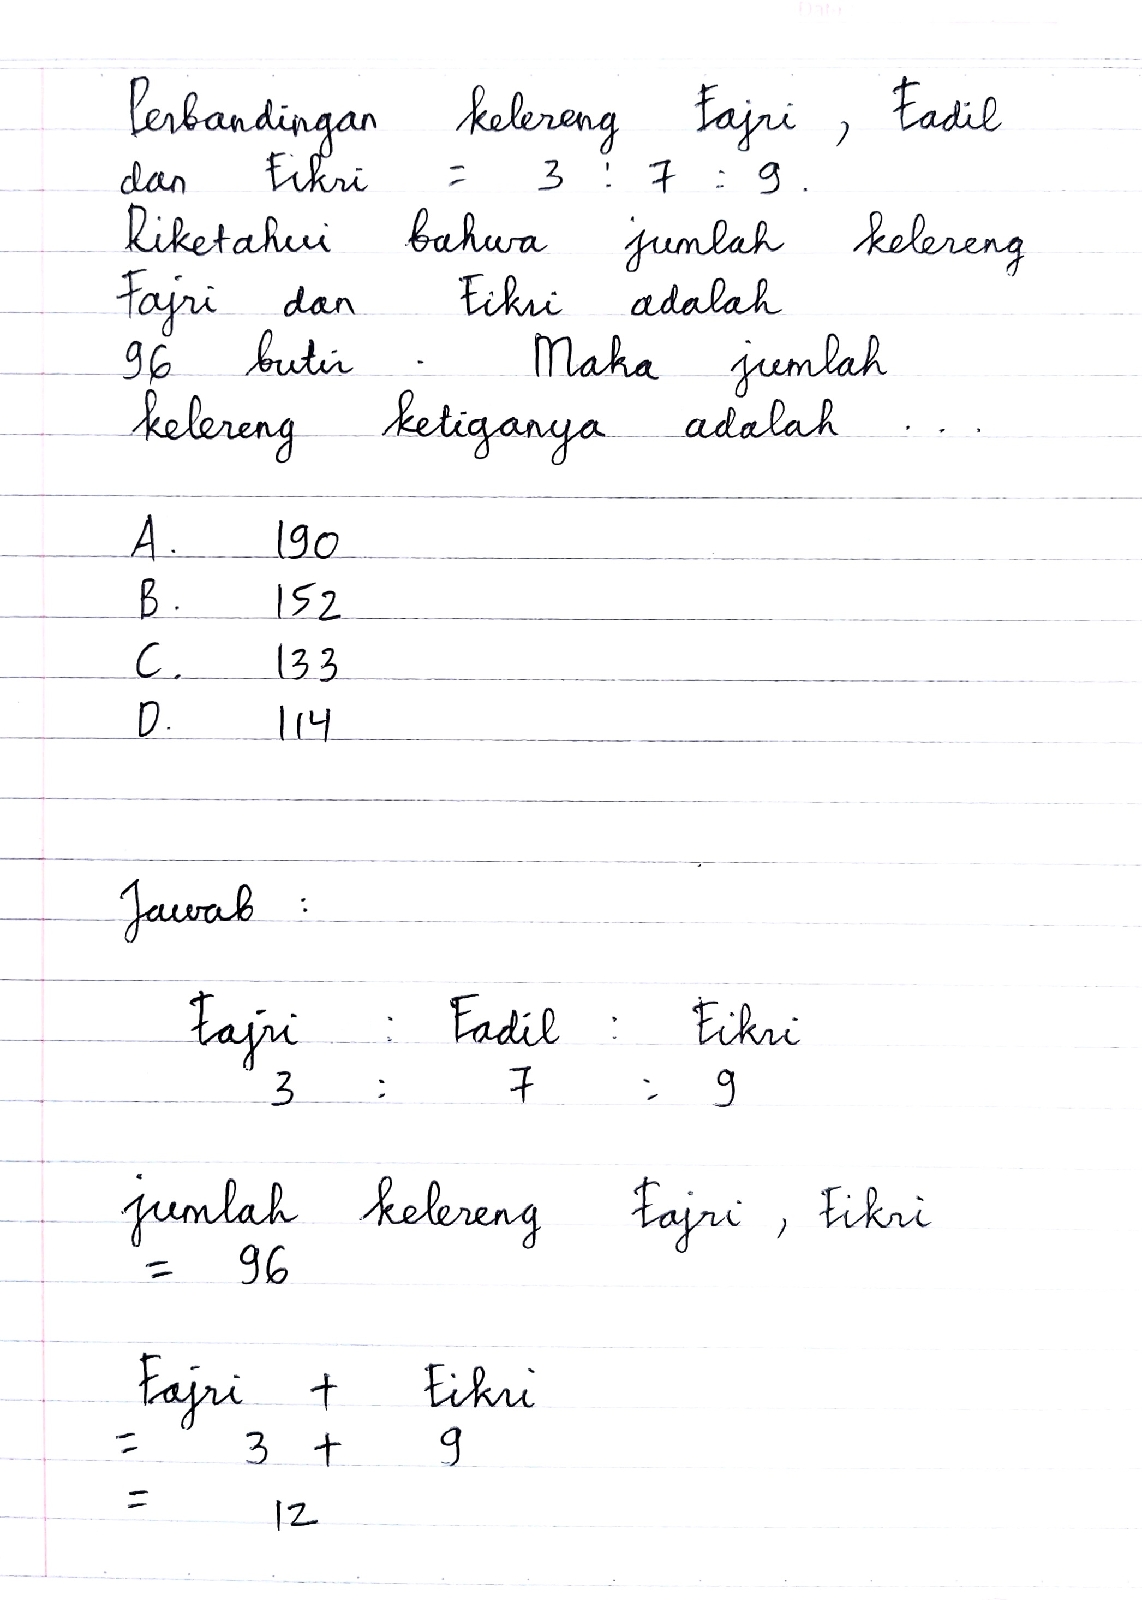 Perbandingan kelereng Fajri, Fadil
dan Fikri = 3 : 7 : 9.
Diketahui bahwa jumlah kelereng
Fajri dan Fikri adalah
96 butir. Maka jumlah
kelereng ketiganya adalah ...
A. 190
B. 152
C. 133
D. 114
Jawab :
Fajri : Fadil : Fikri
3 : 7 : 9
jumlah kelereng Fajri, Fikri
= 96
Fajri + Fikri
= 3 + 9
= 12